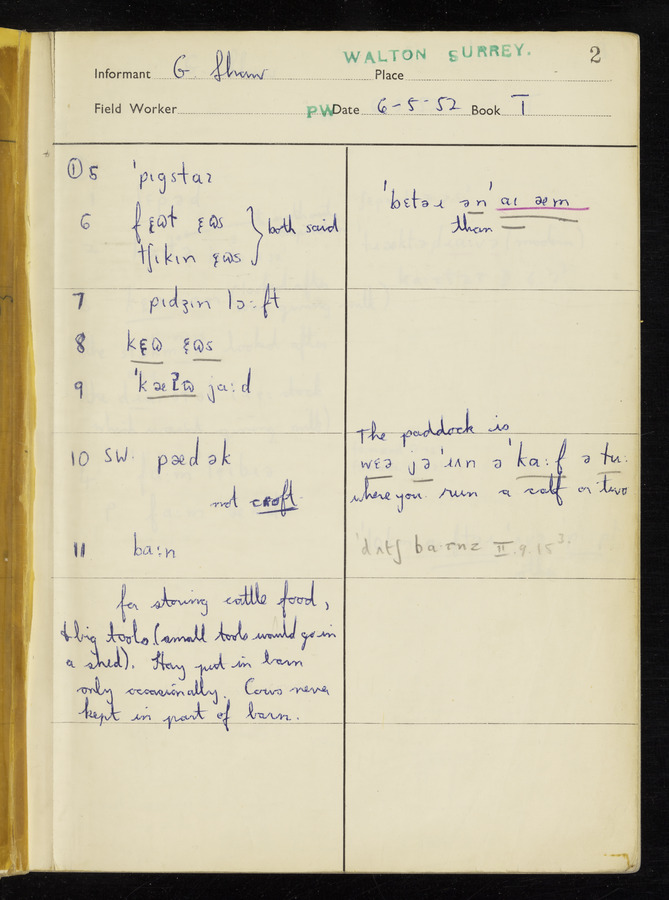 WALTON SURREY. 2
Informant G Shaw Place
Field Worker PW Date 6-5-52 Book I
① 5 ˈpɪgstaɪ
6 fɛʊɫ ɛʊs } both said
tʃɪkɪn ɛʊs
7 pɪdʒɪn lɔːft
8 kɛʊ ɛʊs
9 ˈkæʔʊ jaːd
10 SW. pædək
not croft
11 baːn
for storing cattle food,
& big tools (small tools would go in
a shed). Hay put in barn
only occasionally. Cows never
kept in part of barn.
ˈbɛtəɹ ən' aɪ æm
than
The paddock is
wɛə jə ˈɹʌn ə ˈkaːf ə tuː
where you run a calf or two
ˈdʌtʃ baːnz II.9.15³.